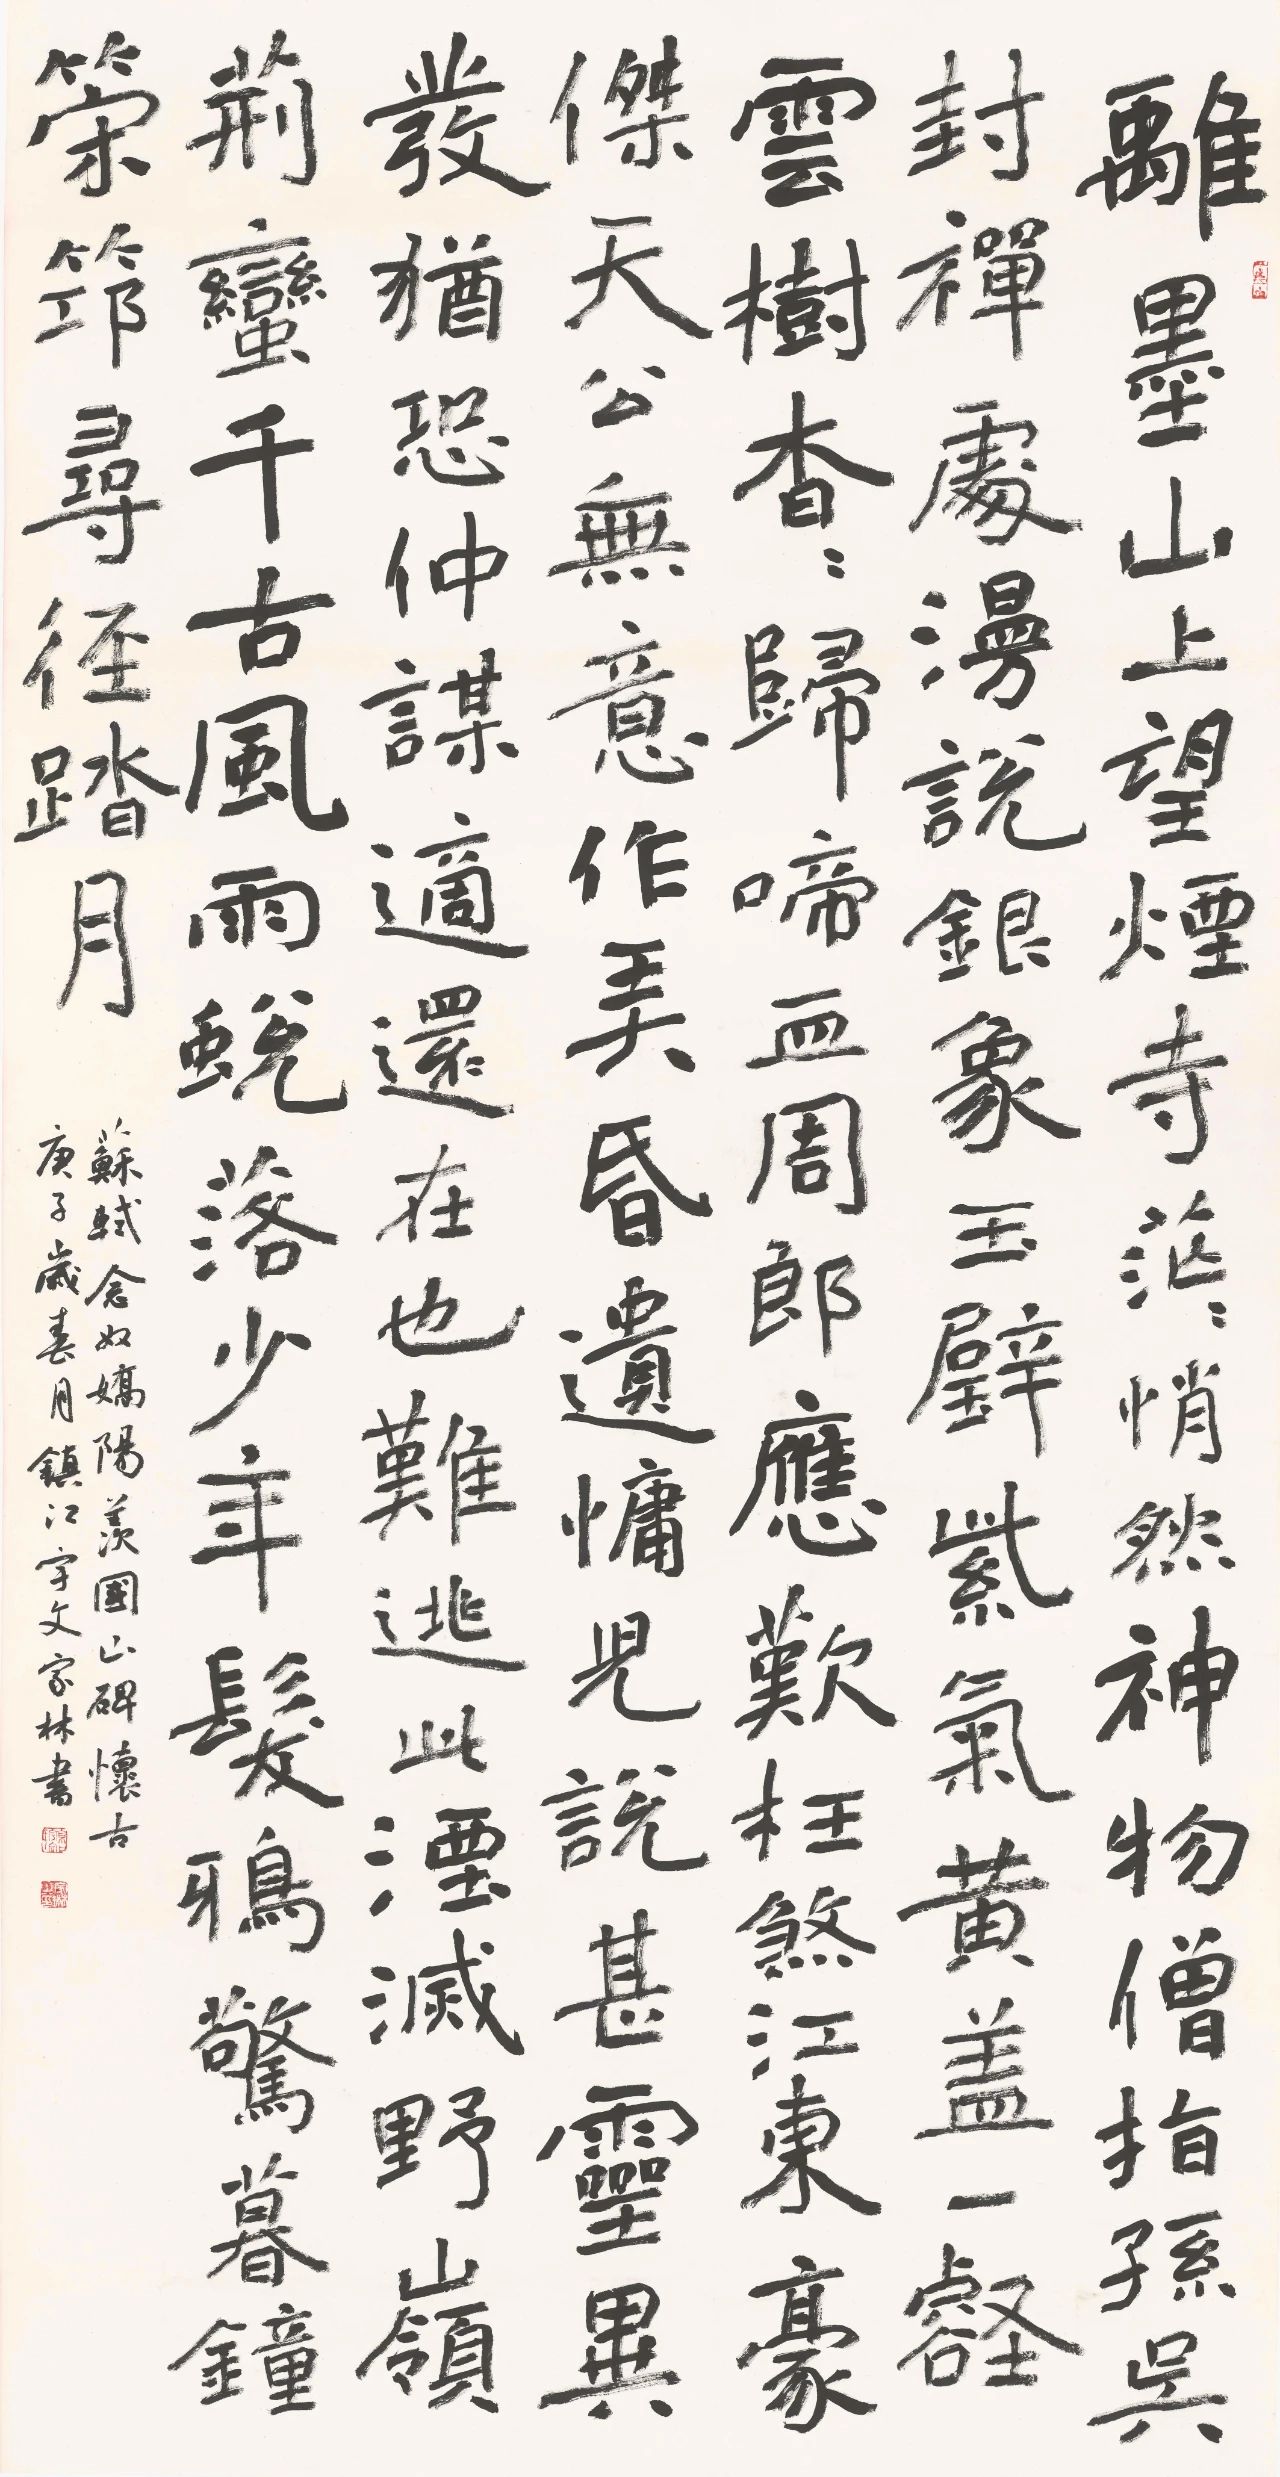 離墨山上望煙寺茫〻悄然神物僧指孫吳
封禪處漫說銀象玉璧紫氣黃蓋一壑
雲樹杳〻歸啼血周郎應歎枉煞江東豪
傑天公無意作弄昏遺慵児說甚靈異
發猶恐仲謀適還在也難逃此湮滅野山嶺
荊蠻千古風雨蛻落少年髮鴉驚暮鐘
筇尋徑踏月
蘇軾念奴嬌陽羨國山碑懷古
庚子歲春月鎮江宇文家林書